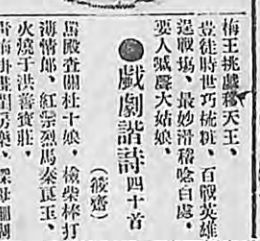 梅王挑戲移天王、
豈徒時世巧梳粧、百戰英雄
逞戰場、最妙滑稽唸白處、
要人喊聲大姑娘、
●戲劇諧詩四十首
(筱齋)
馬殿查關杜十娘、檢柴棒打
海情郎、紅鬃烈馬秦良玉、
火燒于洪善寶莊、